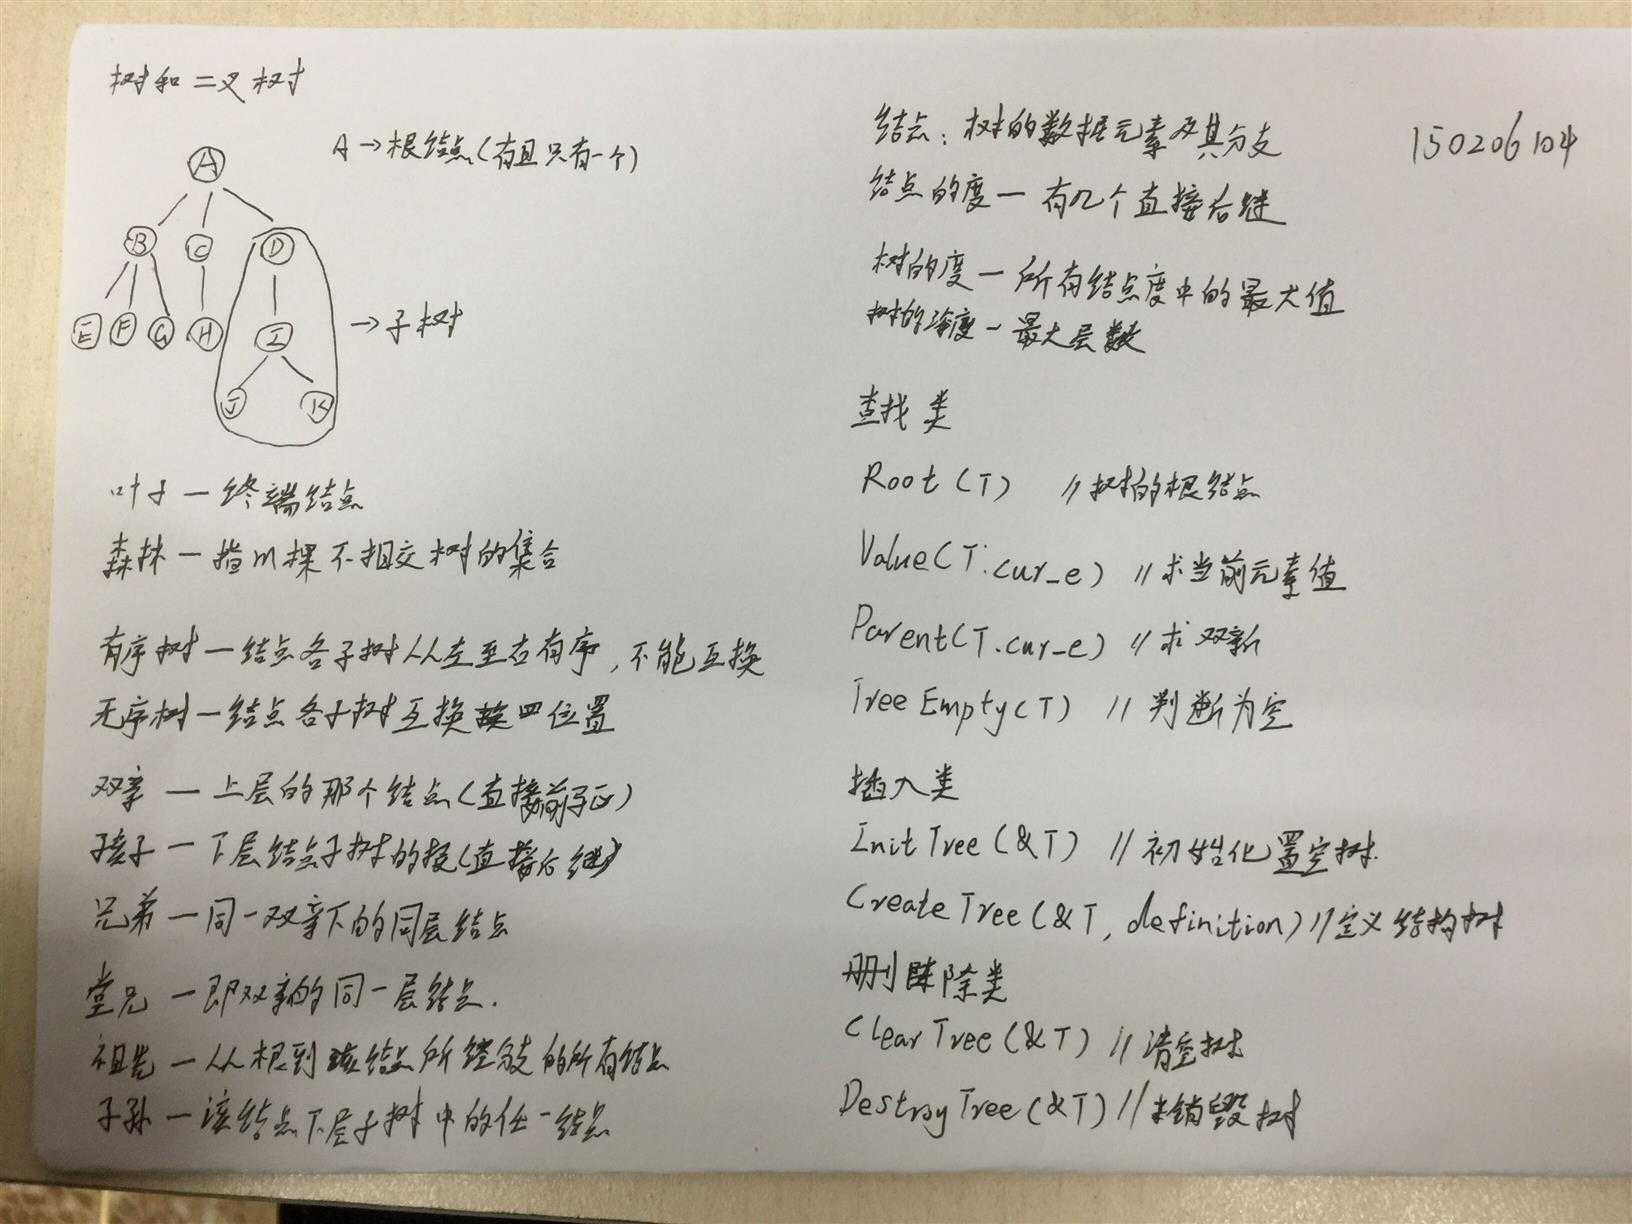 树和二叉树
A→根结点(有且只有一个)
A
B C D
E F G H I
→子树
J K
叶子—终端结点
森林—指m棵不相交树的集合
有序树—结点各子树从左至右有序,不能互换
无序树—结点各子树互换位置
双亲—上层的那个结点(直接前驱)
孩子—下层结点子树的根(直接后继)
兄弟—同一双亲下的同层结点
堂兄—即双亲的同一层结点.
祖先—从根到该结点所经分支的所有结点
子孙—该结点下层子树中的任一结点
150206104
结点:树的数据元素及其分支
结点的度—有几个直接后继
树的度—所有结点度中的最大值
树的深度—最大层数
查找类
Root(T) //树的根结点
Value(T.cur_e) //求当前元素值
Parent(T.cur_e) //求双亲
TreeEmpty(T) //判断为空
插入类
InitTree(&T) //初始化置空树.
CreateTree(&T,definition)//定义结构树
删除类
ClearTree(&T) //清空树
DestroyTree(&T)//销毁树